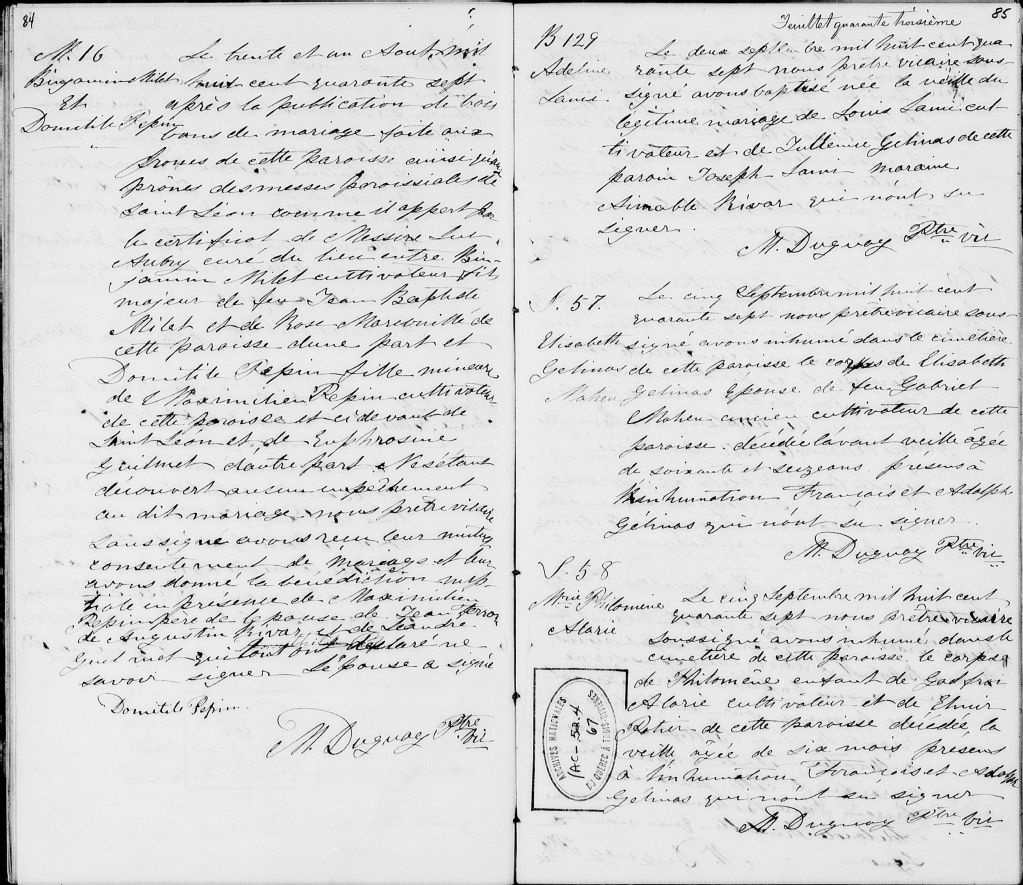 84
M. 16
Benjamin Milet
Et
Domitile Pepin
Le trente et un Aout mil
huit cent quarante sept
après la publication de trois
bans de mariage faite aux
prones de cette paroisse ainsi qu'aux
prônes des messes paroissiales de
Saint Léon comme il appert par
le certificat de Messire Luc
Aubry curé du lieu entre Ben-
jamin Milet cultivateur fils
majeur de feu Jean Baptiste
Milet et de Rose de
cette paroisse d'une part et
Domitile Pepin fille mineure
de Maximilien Pepin cultivateur
de cette paroisse et ci devant de
Saint Léon et de Euphrosine
Guilmet d'autre part Ne s'étant
découvert aucun empêchement
au dit mariage nous prêtre vicaire
soussigné avons recu leur mutuel
consentement de mariage et leur
avons donné la benédiction nup-
tiale en présence de Maximilien
Pepin père de l'épouse de Jean
de Augustin Rivar et de Leandre
Guilmet qui tout ont déclaré ne
savoir signer L'épouse a signé
Domitile Pepin
M. Duguay Ptre
Vic
85
Feuillet quarante troisième
B 129
Adeline
Lami
Le deux septembre mil huit cent qua
rante sept nous prêtre vicaire sous-
signé avons baptisé née la veille du
légitime mariage de Louis Lami cul
tivateur et de Julienne Gelinas de cette
parain Joseph Lami Maraine
Aimable Rivar qui n'ont su
signer.
M. Duguay Ptre vic
S. 57.
Elisabeth
Gelinas
Maheu
Le cinq Septembre mil huit cent
quarante sept nous prêtre vicaire sous-
signé avons inhumé dans le cimetière
de cette paroisse le corps de Elisabeth
Gelinas Epouse de feu Gabriel
Maheu ancien cultivateur de cette
paroisse décédée l'avant veille âgée
de soixante et seize ans. présens à
l'inhumation François et Adolphe
Gélinas qui n'ont su signer
M. Duguay Ptre vic
S. 58
Mrie Philomène
Alarie
Le cinq Septembre mil huit cent
quarante sept nous prêtre vicaire
soussigné avons inhumé dans le
cimetière de cette paroisse le corps
de Philomène enfant de Godfroi
Alarie cultivateur et de
de cette paroisse décédée la
veille âgée de six mois presens
à l'inhumation François et Adolphe
Gelinas qui n'ont su signer
M. Duguay Ptre vic
ARCHIVES NATIONALES
AC-52.4
67
DU QUÉBEC À TROIS-RIVIÈRES